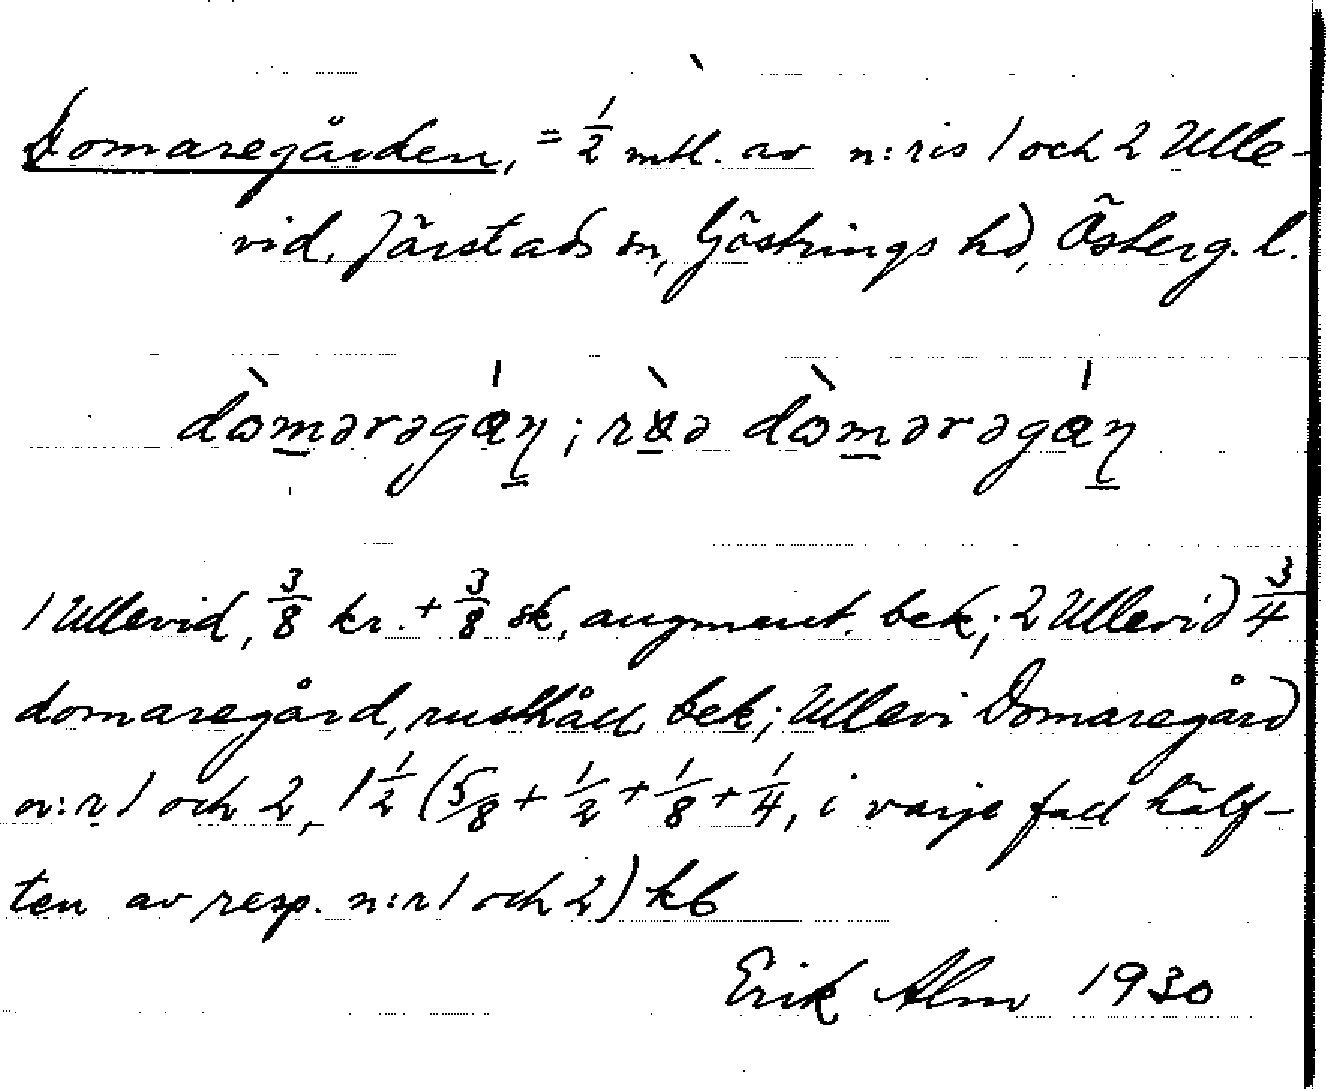 Domaregården, = 1/2 mtl. av n:ris 1 och 2 Ulle-
vid, Järstads sn, Göstrings hd, Österg. l.
dòmərəgán; dòmərəgán
1 Ullevid, 3/8 kr. + 3/8 sk, augment. bek; 2 Ullevid 3/4
domaregård, rusthåll bek; Ullevi Domaregård
n:r 1 och 2, 1 1/2 (5/8 + 1/2 + 1/8 + 1/4, i varje fall hälf-
ten av resp. n:r 1 och 2) kb
Erik Alm 1930